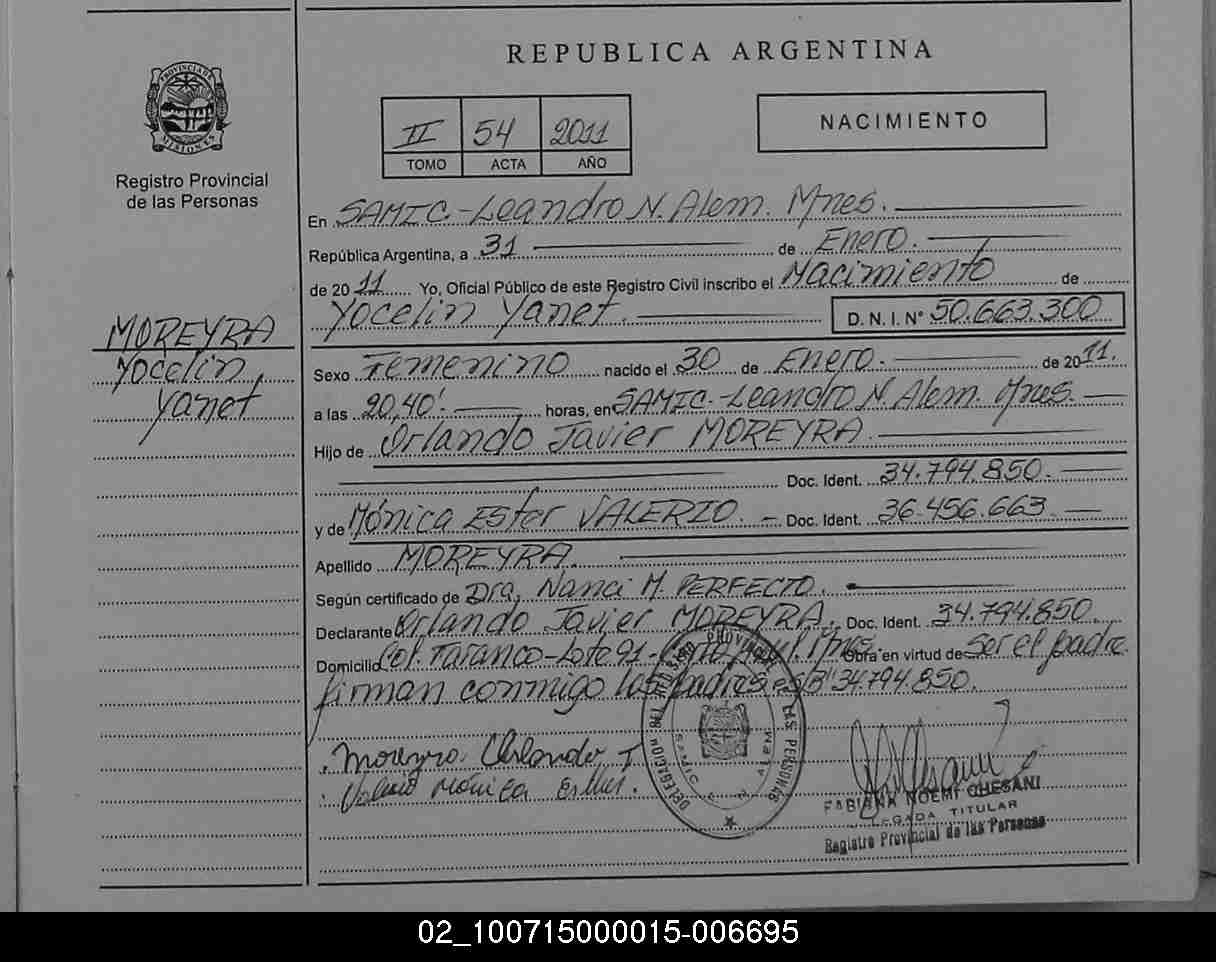 REPUBLICA ARGENTINA
PROVINCIA DE
MISIONES
Registro Provincial
de las Personas
II 54 2011
TOMO ACTA AÑO
NACIMIENTO
En SAMIC.-Leandro N. Alem. Mnes.
República Argentina, a 31 de Enero.
de 2011 Yo, Oficial Público de este Registro Civil inscribo el Nacimiento de
Yocelin Yanet. D. N. I. N° 50.663.300
MOREYRA
Yocelin,
Yanet
Sexo Femenino nacido el 30 de Enero. de 2011.
a las 20,40'. horas, en SAMIC.-Leandro N. Alem. Mnes.
Hijo de Orlando Javier MOREYRA.
Doc. Ident. 34.794.850.
y de Mónica Ester VALERIO. Doc. Ident. 36.456.663.
Apellido MOREYRA.
Según certificado de Dra. Nanci M. PERFECTO.
Declarante Orlando Javier MOREYRA. Doc. Ident. 34.794.850.
Domicilio Col. Taranco-Lote 91- Mnes. Obra en virtud de Ser el padre.
firman conmigo los padres 34.794.850.
Moreyra Orlando J
Valerio Mónica Ester.
DELEGACION DEL REGISTRO PROVINCIAL LAS PERSONAS
SAMIC ALEM
FABIANA NOEMI CHESANI
TITULAR
Registro Provincial de las Personas
02_100715000015-006695